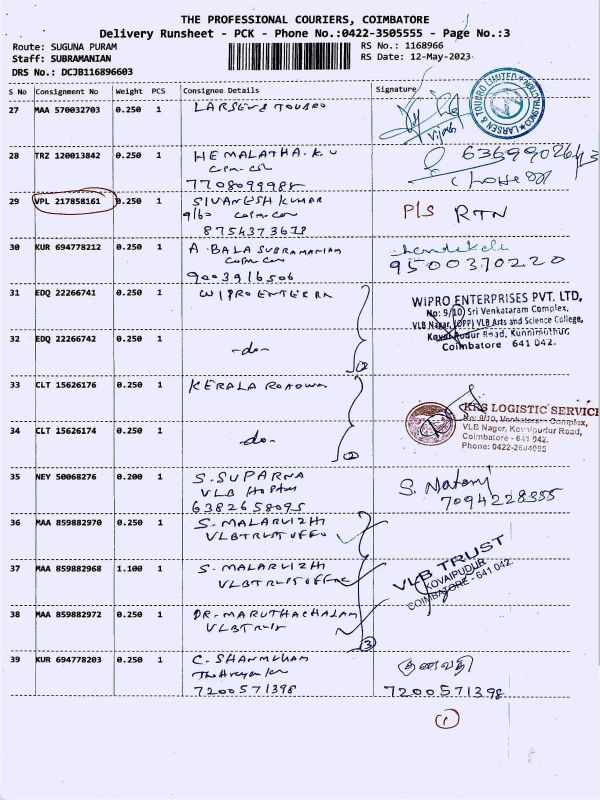 THE PROFESSIONAL COURIERS, COIMBATORE
Delivery Runsheet - PCK - Phone No.:0422-3505555 - Page No.:3
Route: SUGUNA PURAM
RS No.: 1168966
Staff: SUBRAMANIAN
RS Date: 12-May-2023
DRS No.: DCJB116896603
S No Consignment No Weight PCS Consignee Details Signature
27 MAA 570032703 0.250 1 LARSEN & TOUBRO
LARSEN & TOUBRO LIMITED
CONSTRUCTION
28 TRZ 120013842 0.250 1 HEMALATHA. K.V
7708099985
29 VPL 217858161 0.250 1 SIVANESH KUMAR P/S RTN
9/60
8754373618
30 KUR 694778212 0.250 1 A. BALA SUBRAMANIAM
9003916506
9500370220
31 EDQ 22266741 0.250 1 WIPRO
WIPRO ENTERPRISES PVT. LTD,
No: 9/10) Sri Venkataram Complex,
VLB Nagar, (OPP) VLB Arts and Science College,
Kovai Pudur Road, Kunnimuthur,
Coimbatore 641 042.
32 EDQ 22266742 0.250 1 -do-
(2)
33 CLT 15626176 0.250 1 KERALA ROADWAYS
KRS LOGISTIC SERVIC
No: 9/10, Venkataram Complex,
VLB Nager, Kovaipudur Road,
Coimbatore - 641 042.
Phone: 0422-2604095
34 CLT 15626174 0.250 1 -do-
(2)
35 NEY 50068276 0.200 1 S. SUPARNA
VLB
6382658095
7094228555
36 MAA 859882970 0.250 1 S. MALARVIZHI
VLB TRUST OFFICE
37 MAA 859882968 1.100 1 S. MALARVIZHI
VLB TRUST OFFICE
VLB TRUST
KOVAIPUDUR
COIMBATORE - 641 042.
38 MAA 859882972 0.250 1 DR. MARUTHACHALAM
VLB Trust
(3)
39 KUR 694778203 0.250 1 C. SHANMUHAM
7200571398
7200571398
(1)